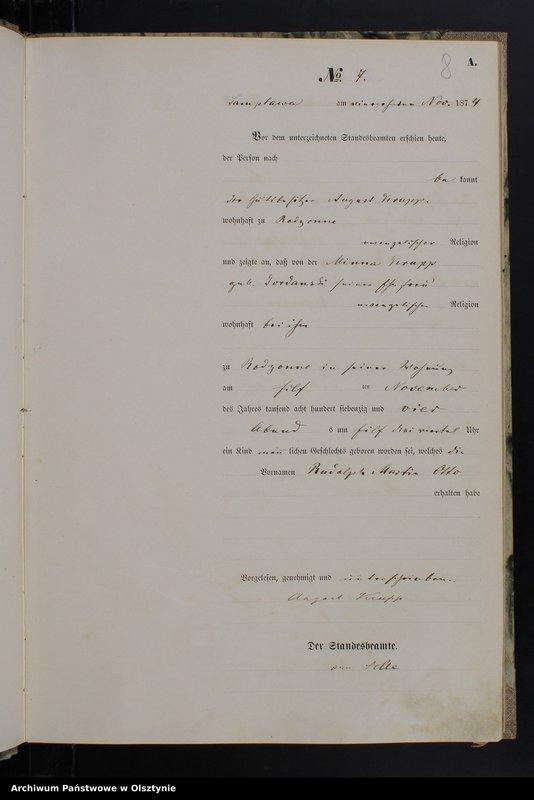 8 A.
No. 7.
Samplawa am vierzehnten Nov. 1874
Vor dem unterzeichneten Standesbeamten erschien heute,
der Person nach
be kannt
der Gutsbesitzer August
wohnhaft zu Rodzonne
evangelischer Religion
und zeigte an, daß von der Minna
geb. seiner Ehefrau
evangelischer Religion
wohnhaft bei ihm
zu Rodzonne in seiner Wohnung
am elf ten November
des Jahres tausend acht hundert siebenzig und vier
Abend s um elf drei viertel Uhr
ein Kind männ lichen Geschlechts geboren worden sei, welches die
Vornamen Rudolph Martin Otto
erhalten habe
Vorgelesen, genehmigt und unterschrieben.
August
Der Standesbeamte.
Archiwum Państwowe w Olsztynie